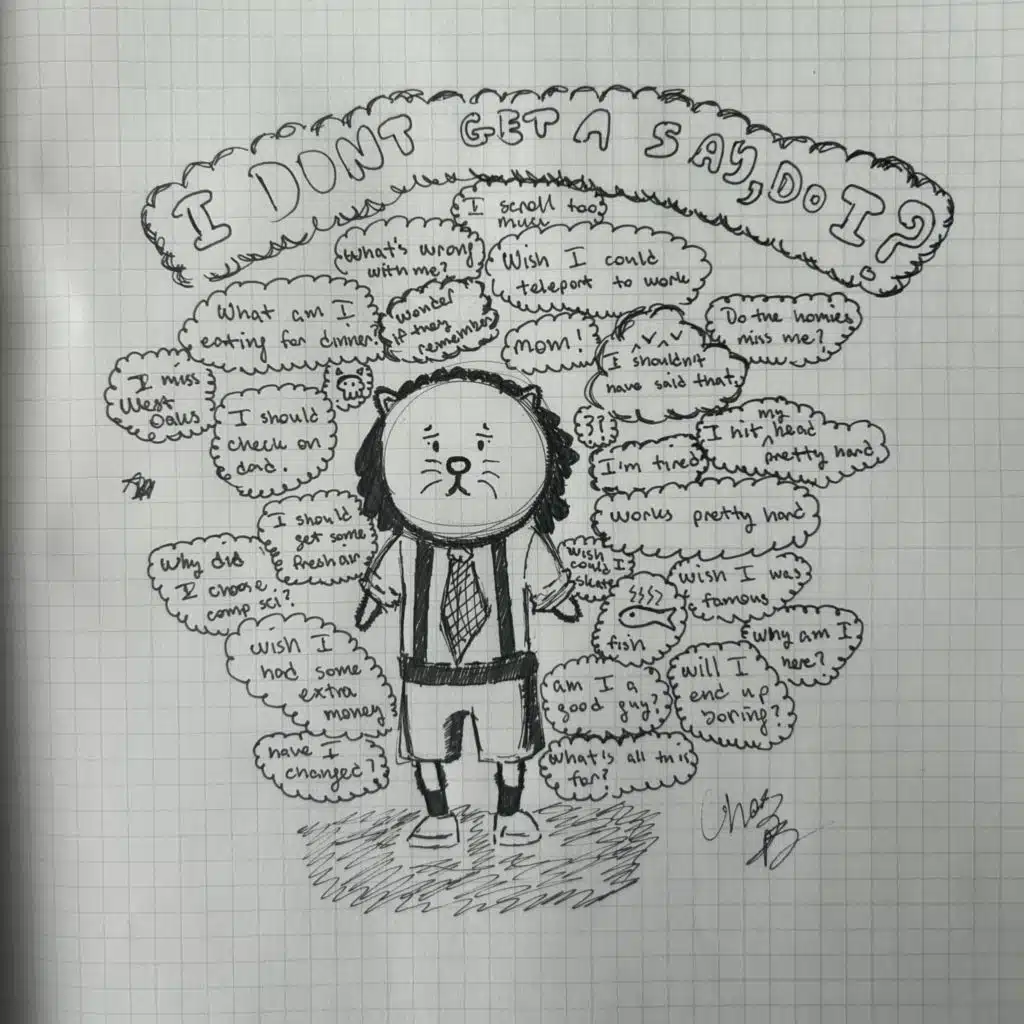 I DONT GET A SAY, DO I?
I scroll too
much
What's wrong
with me?
Wish I could
teleport to work
What am I
eating for dinner?
wonder
if they
remember
mom!
I shouldn't
have said that
Do the homies
miss me?
I miss
West
Oaks
I should
check on
dad.
??
I'm tired
my
I hit head
pretty hard
I should
get some
fresh air
works pretty hard
Why did
I choose
comp sci?
wish
I
could
skate
fish
wish I was
famous
why am I
here?
wish I
had some
extra
money
am I a
good guy?
will I
end up
boring?
have I
changed?
what's all this
for?